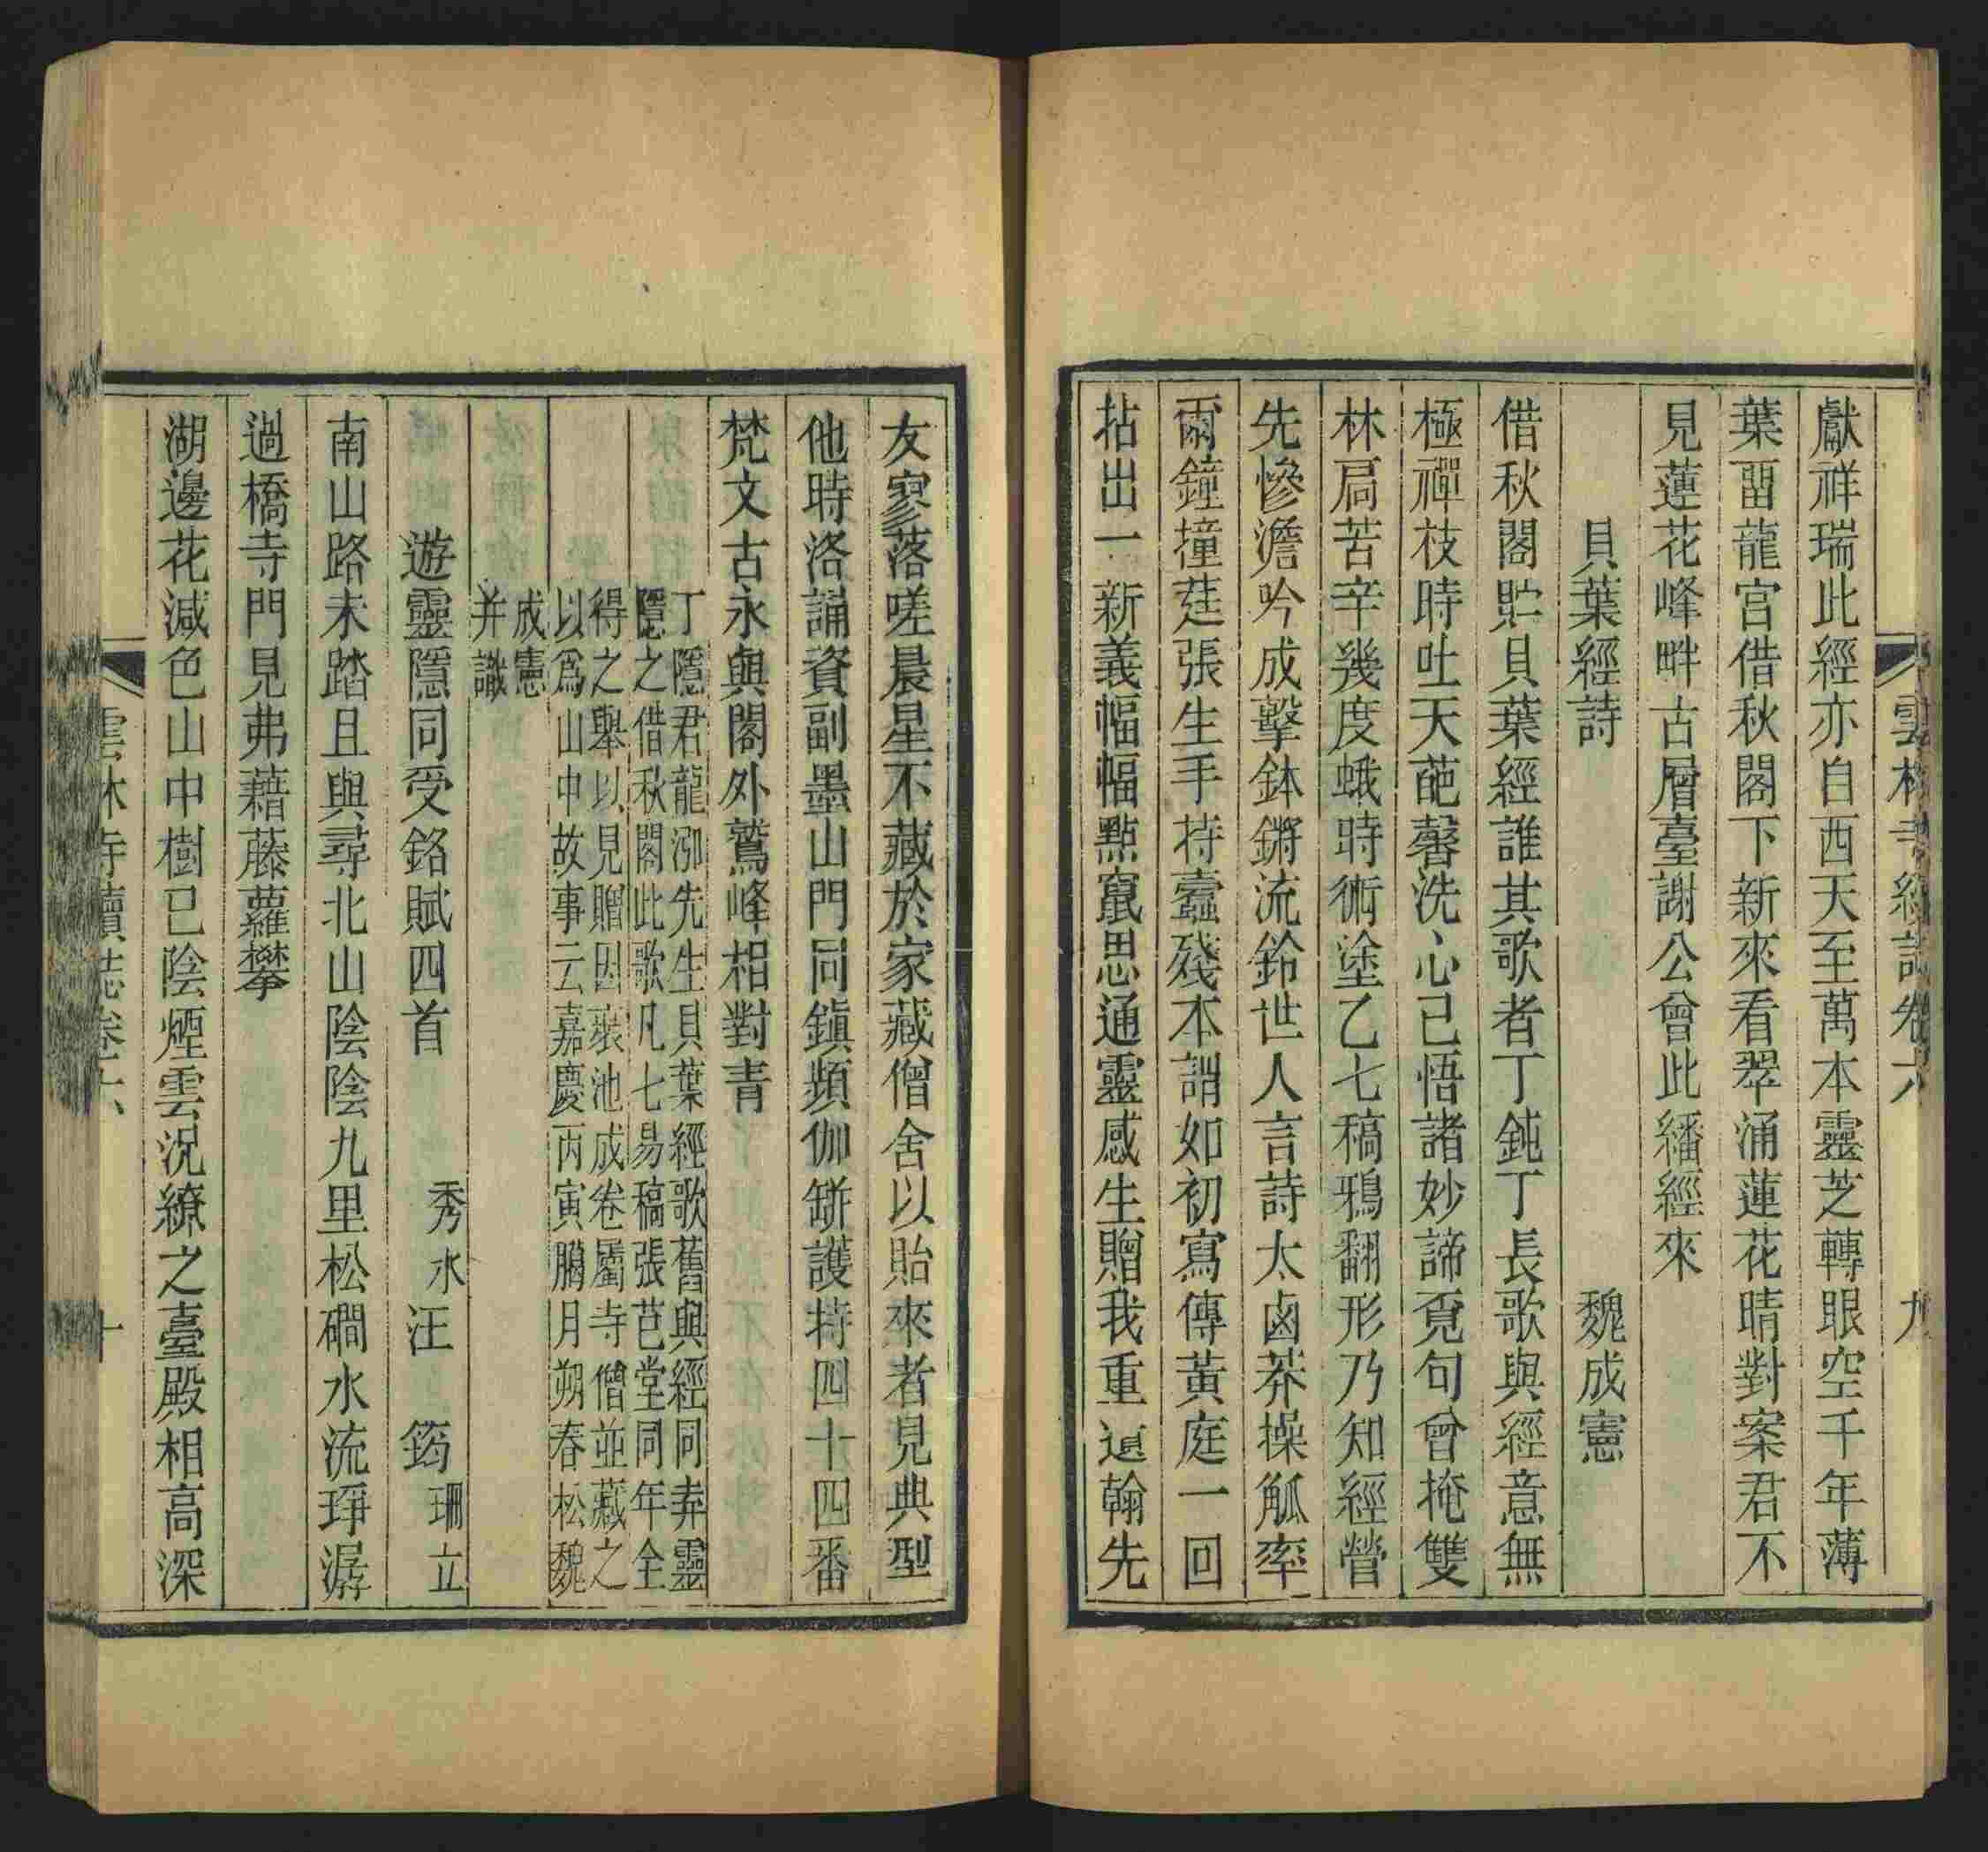 雲林寺續誌卷六　九
獻祥瑞此經亦自西天至萬本靈芝轉眼空千年薄
葉畱龍宮借秋閣下新來看翠涌蓮花晴對案君不
見蓮花峰畔古層臺謝公曾此繙經來
貝葉經詩　魏成憲
借秋閣貯貝葉經誰其歌者丁鈍丁長歌與經意無
極禪枝時吐天葩馨洗心已悟諸妙諦覓句曾掩雙
林扃苦辛幾度蛾時術塗乙七稿鴉翻形乃知經營
先慘澹吟成擊鉢鏘流鈴世人言詩太鹵莽操觚率
爾鐘撞莛張生手持蠹殘本謂如初寫傳黃庭一回
拈出一新義幅幅點竄思通靈感生贈我重追翰先
友寥落嗟晨星不藏於家藏僧舍以貽來者見典型
他時洛誦資副墨山門同鎮頻伽缾護持四十四番
梵文古永與閣外鷲峰相對青
丁隱君龍泓先生貝葉經歌舊與經同弆靈
隱之借秋閣此歌凡七易稿張芑堂同年全
得之舉以見贈因裝池成卷屬寺僧並藏之
以爲山中故事云嘉慶丙寅臘月朔春松魏
成憲
并識
遊靈隱同受銘賦四首　秀水汪　筠珊立
南山路未踏且與尋北山陰陰九里松磵水流琤潺
過橋寺門見弗藉藤蘿攀
湖邊花減色山中樹已陰煙雲況繚之臺殿相高深
雲林寺續誌卷六　十